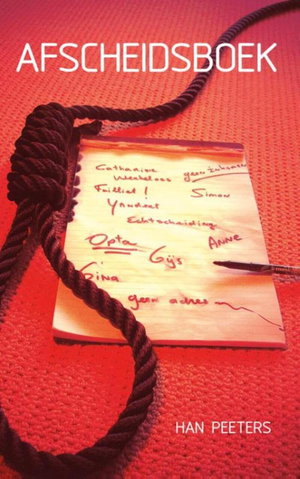 AFSCHEIDSBOEK
Catharina
Werkeloos geen inkomen
Failliet! Simon
IJndent
Echtscheiding
Opta Gijs ANNE
Gina
geen adres
HAN PEETERS